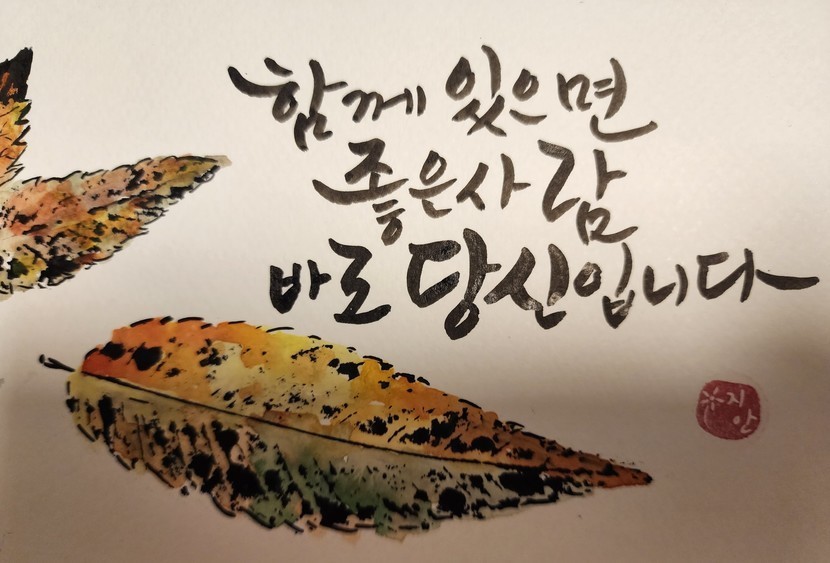 함께 있으면
좋은사람
바로 당신입니다
지안